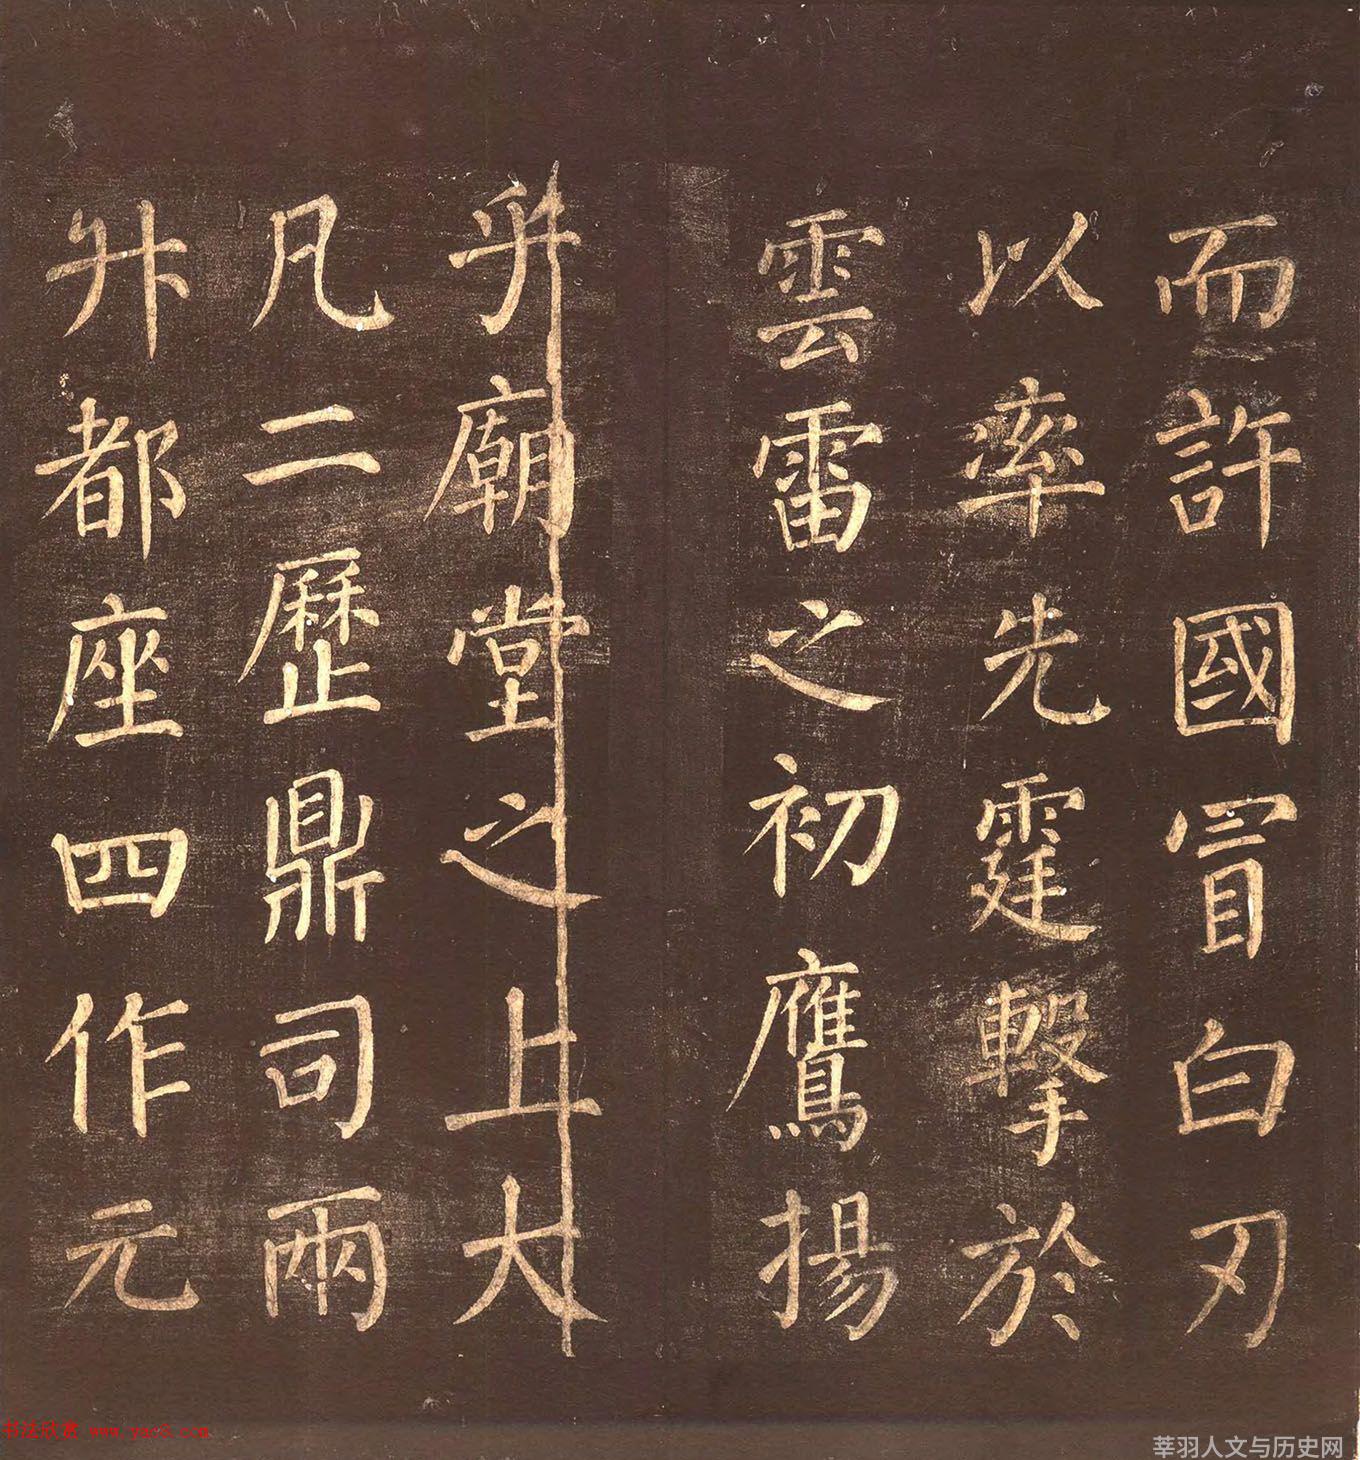 而許國冒白刃
以率先霆擊於
雲雷之初鷹揚
乎廟堂之上大
凡二歷鼎司兩
升都座四作元
书法欣赏 www.yac8.com
莘羽人文与历史网